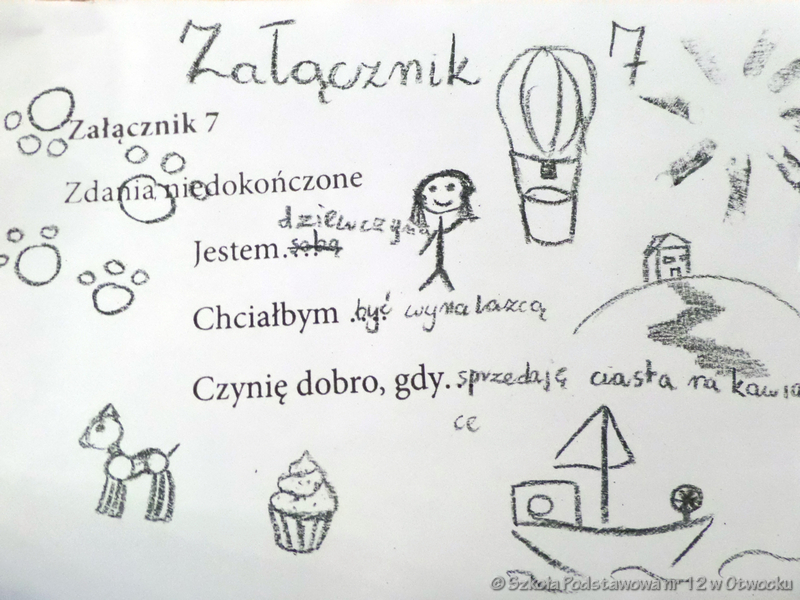 Załącznik 7
Załącznik 7
Zdania niedokończone
dziewczyną
Jestem. sobą
Chciałbym .być wynalazcą
Czynię dobro, gdy. sprzedaję ciasta na kawia
cę
© Szkoła Podstawowa nr 12 w Otwocku